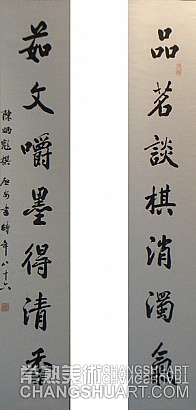 品茗談棋消濁氣
茹文嚼墨得清香
陳炳彪撰 屈安書時年八十六
常熟美術
CHANGSHUART.COM